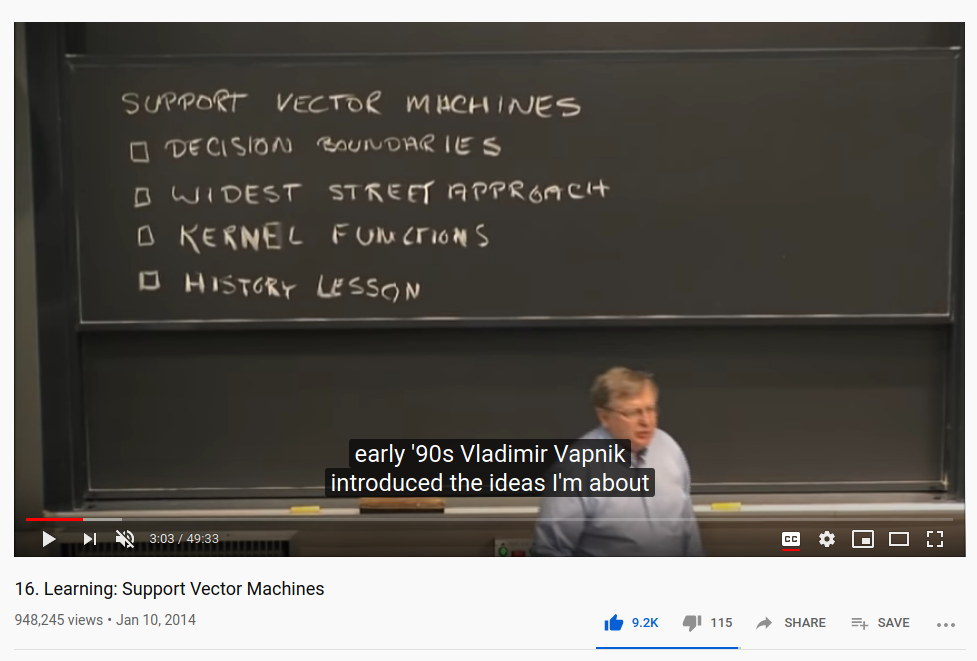 SUPPORT VECTOR MACHINES
DECISION BOUNDARIES
WIDEST STREET APPROACH
KERNEL FUNCTIONS
HISTORY LESSON
early '90s Vladimir Vapnik
introduced the ideas I'm about
3:03 / 49:33
CC
16. Learning: Support Vector Machines
948,245 views • Jan 10, 2014
9.2K 115 SHARE SAVE